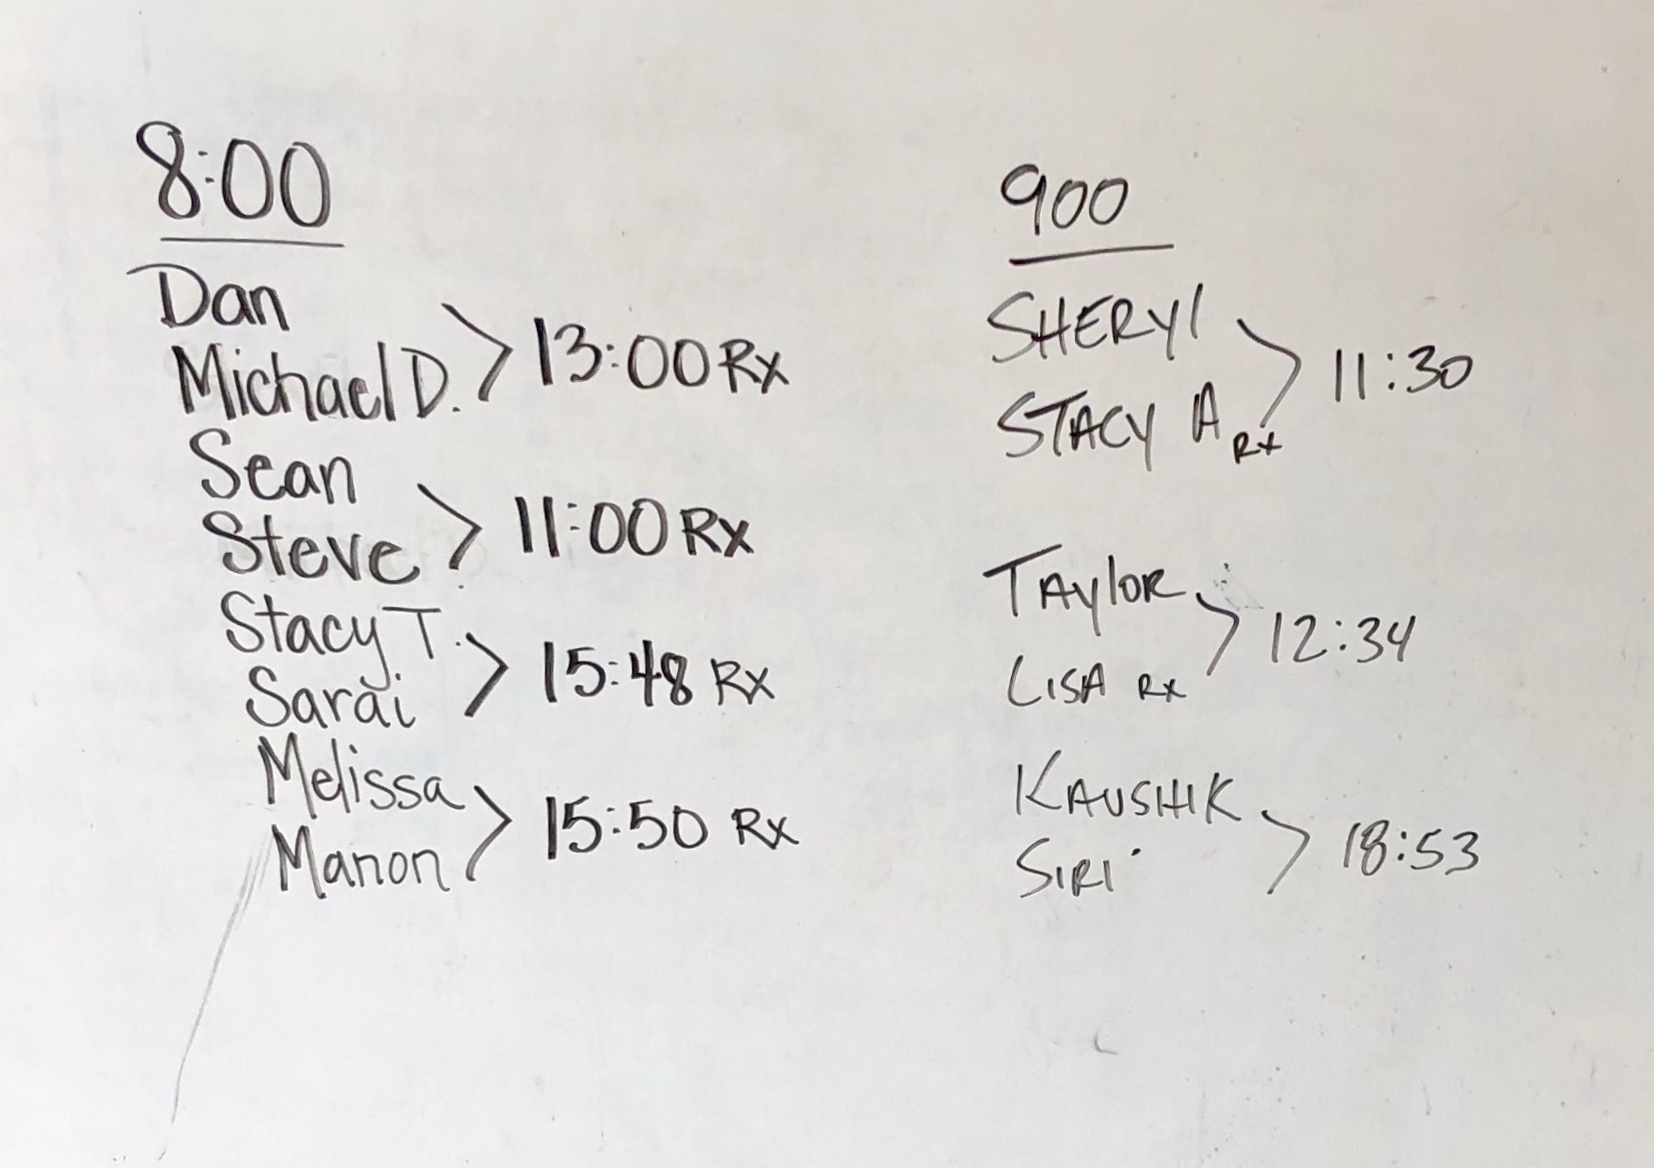 8:00
Dan
Michael D.
13:00 Rx
Sean
Steve
11:00 Rx
Stacy T.
Sarai
15:48 Rx
Melissa
Manon
15:50 Rx
900
SHERYl
STACY A RX
11:30
TAylOR
LISA RX
12:34
KAUSHIK
SIRI
18:53